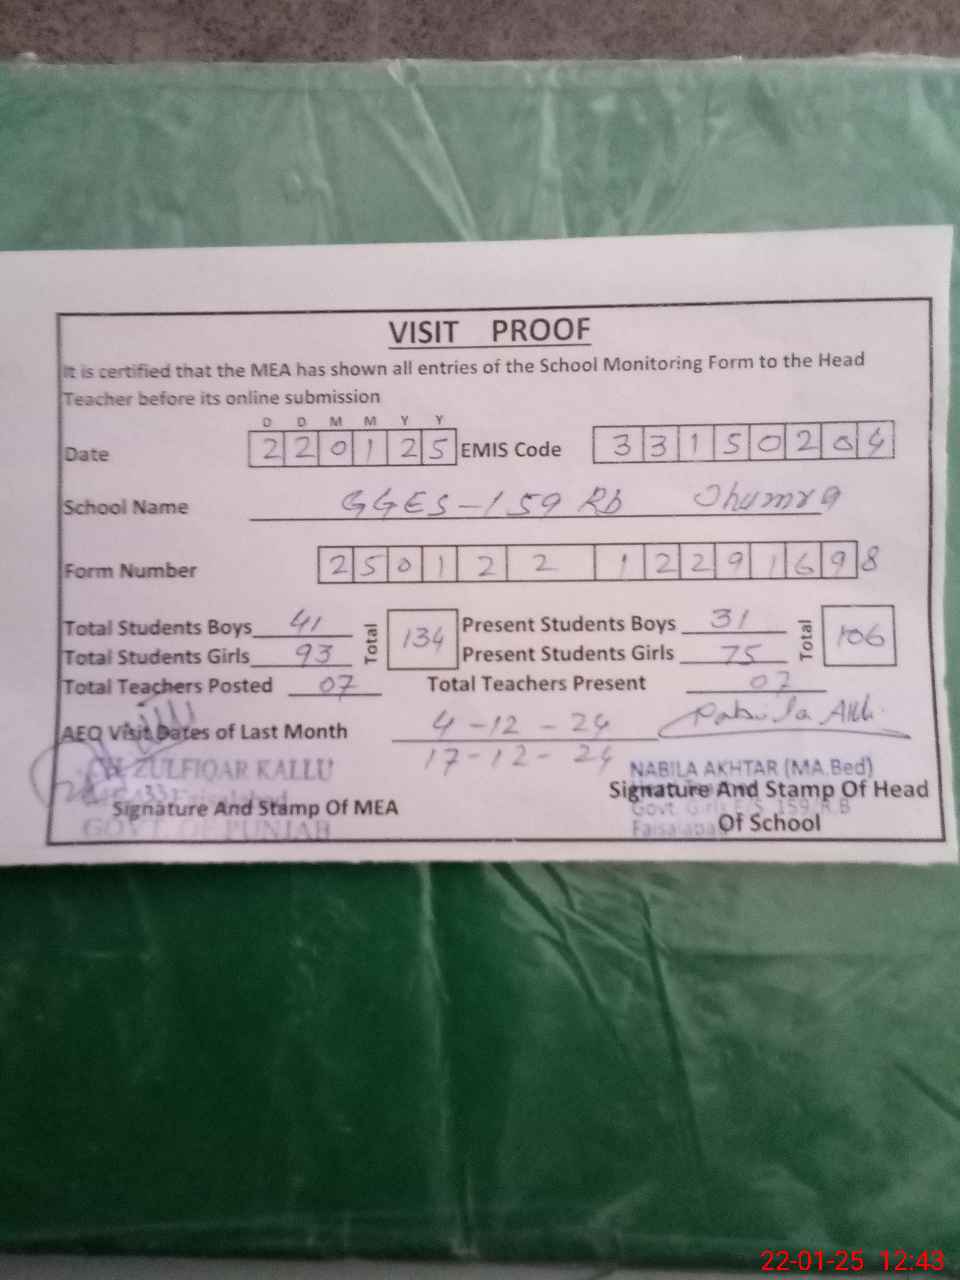 VISIT PROOF
It is certified that the MEA has shown all entries of the School Monitoring Form to the Head
Teacher before its online submission
D D M M Y Y
Date 2 2 0 1 2 5 EMIS Code 3 3 1 5 0 2 0 4
School Name GGES-159 Rb Jhumra
Form Number 2 5 0 1 2 2 1 2 2 9 1 6 9 8
Total Students Boys 41 Total 134 Present Students Boys 31 Total 106
Total Students Girls 93 Present Students Girls 75
Total Teachers Posted 07 Total Teachers Present 07
AEO Visit Dates of Last Month 4-12-24
17-12-24
ZULFIQAR KALLU NABILA AKHTAR (MA.Bed)
Signature And Stamp Of MEA Signature And Stamp Of Head
GOVT. OF PUNJAB Govt. Girls E/S 159/R.B
Faisalabad Of School
22-01-25 12:43